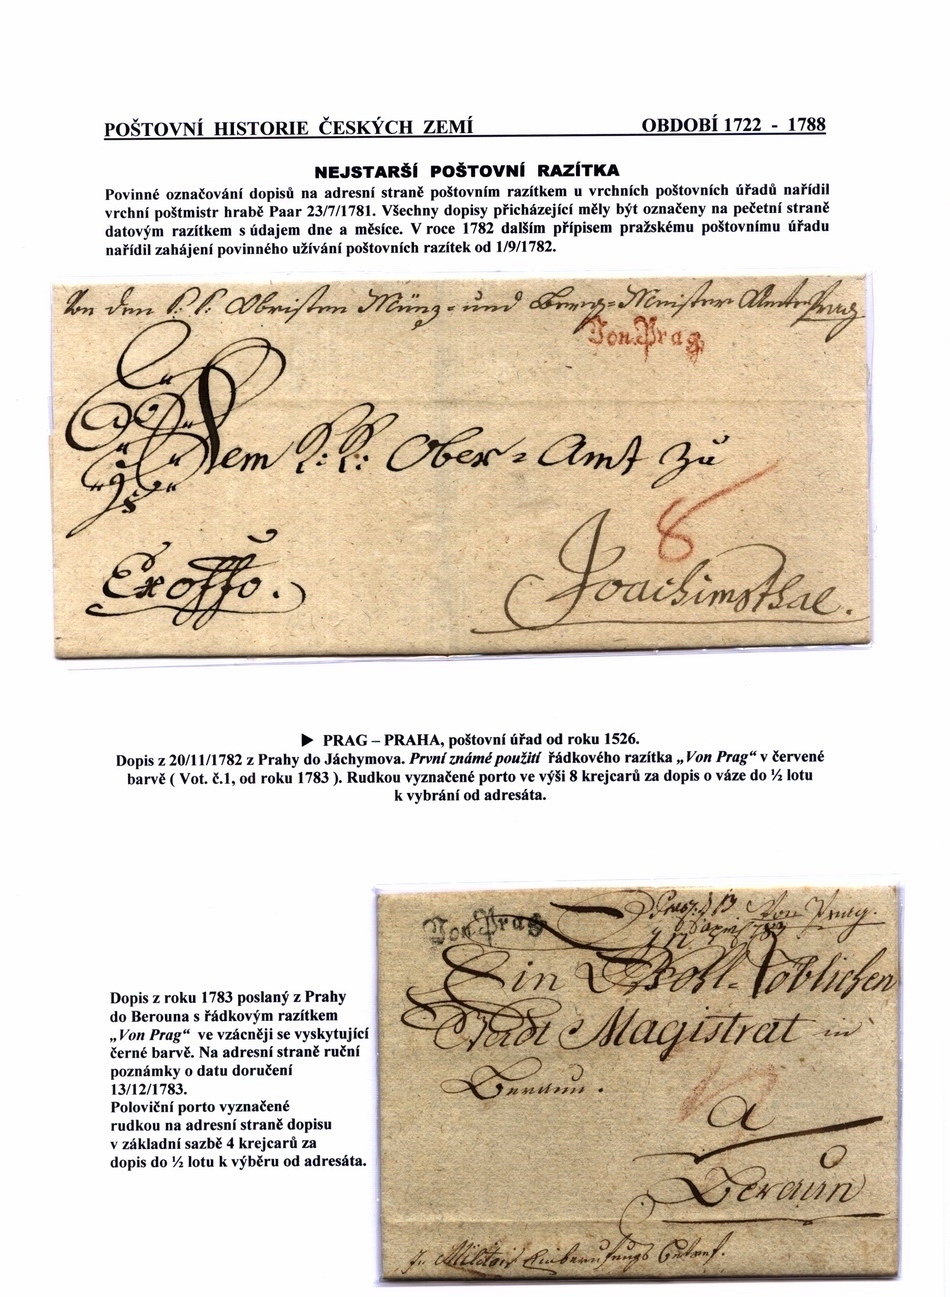 POŠTOVNÍ HISTORIE ČESKÝCH ZEMÍ OBDOBÍ 1722 - 1788
NEJSTARŠÍ POŠTOVNÍ RAZÍTKA
Povinné označování dopisů na adresní straně poštovním razítkem u vrchních poštovních úřadů nařídil
vrchní poštmistr hrabě Paar 23/7/1781. Všechny dopisy přicházející měly být označeny na pečetní straně
datovým razítkem s údajem dne a měsíce. V roce 1782 dalším přípisem pražskému poštovnímu úřadu
nařídil zahájení povinného užívání poštovních razítek od 1/9/1782.
Von den k: k: Obristen Münz- und Berg-Meister Amte Prag
Von Prag
Dem k: k: Ober=Amt zu
8
Exoffo.
Joachimsthal.
▶ PRAG – PRAHA, poštovní úřad od roku 1526.
Dopis z 20/11/1782 z Prahy do Jáchymova. První známé použití řádkového razítka „Von Prag“ v červené
barvě ( Vot. č.1, od roku 1783 ). Rudkou vyznačené porto ve výši 8 krejcarů za dopis o váze do ½ lotu
k vybrání od adresáta.
Von Prag.
Von Prag
Ein Wohl=löblichen
Stadt Magistrat in
Beraun.
a
Beraun
Militair Einberufungs
Dopis z roku 1783 poslaný z Prahy
do Berouna s řádkovým razítkem
„Von Prag“ ve vzácněji se vyskytující
černé barvě. Na adresní straně ruční
poznámky o datu doručení
13/12/1783.
Poloviční porto vyznačené
rudkou na adresní straně dopisu
v základní sazbě 4 krejcarů za
dopis do ½ lotu k výběru od adresáta.